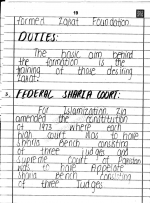 19
formed Zakat Foundation
DUTIES:
The basic aim behind
the formation is the
training of those desiring
zakat.
5. FEDERAL SHARIA COURT:
For Islamization Zia
amended the constitution
of 1973 where each
high court was to have
Sharia Bench consisting
of three judges and
Supreme Court of Pakistan
was to have Appelate
Sharia Bench consisting
of three Judges